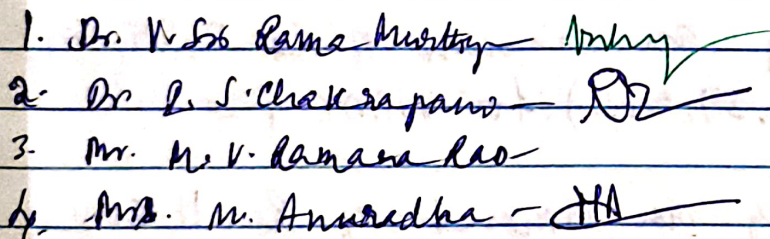 1. Dr. V. Sri Rama Murthy -
2. Dr R. S. Chakrapani -
3. Mr. M. V. Ramana Rao -
4. Mrs. M. Anuradha -